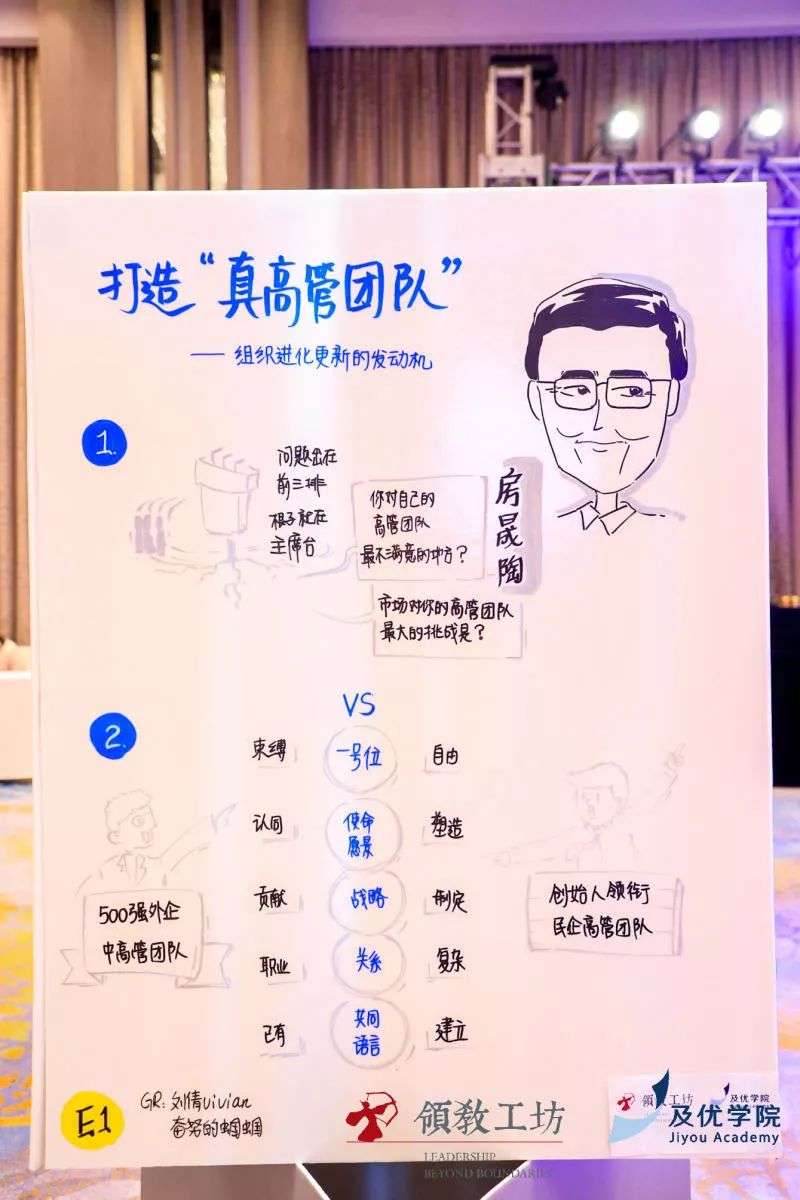 打造“真高管团队”
—— 组织进化更新的发动机
1.
问题出在
前三排
根子就在
主席台
你对自己的
高管团队
最不满意的地方？
房晟陶
市场对你的高管团队
最大的挑战是？
2.
VS
束缚 一号位 自由
认同 使命愿景 塑造
贡献 战略 制定
职业 关系 复杂
已有 共同语言 建立
500强外企
中高管团队
创始人领衔
民企高管团队
E1
GR: 刘倩Vivian
奋努的蝈蝈
領教工坊
LEADERSHIP
BEYOND BOUNDARIES
領教工坊
及优学院
及优学院
Jiyou Academy